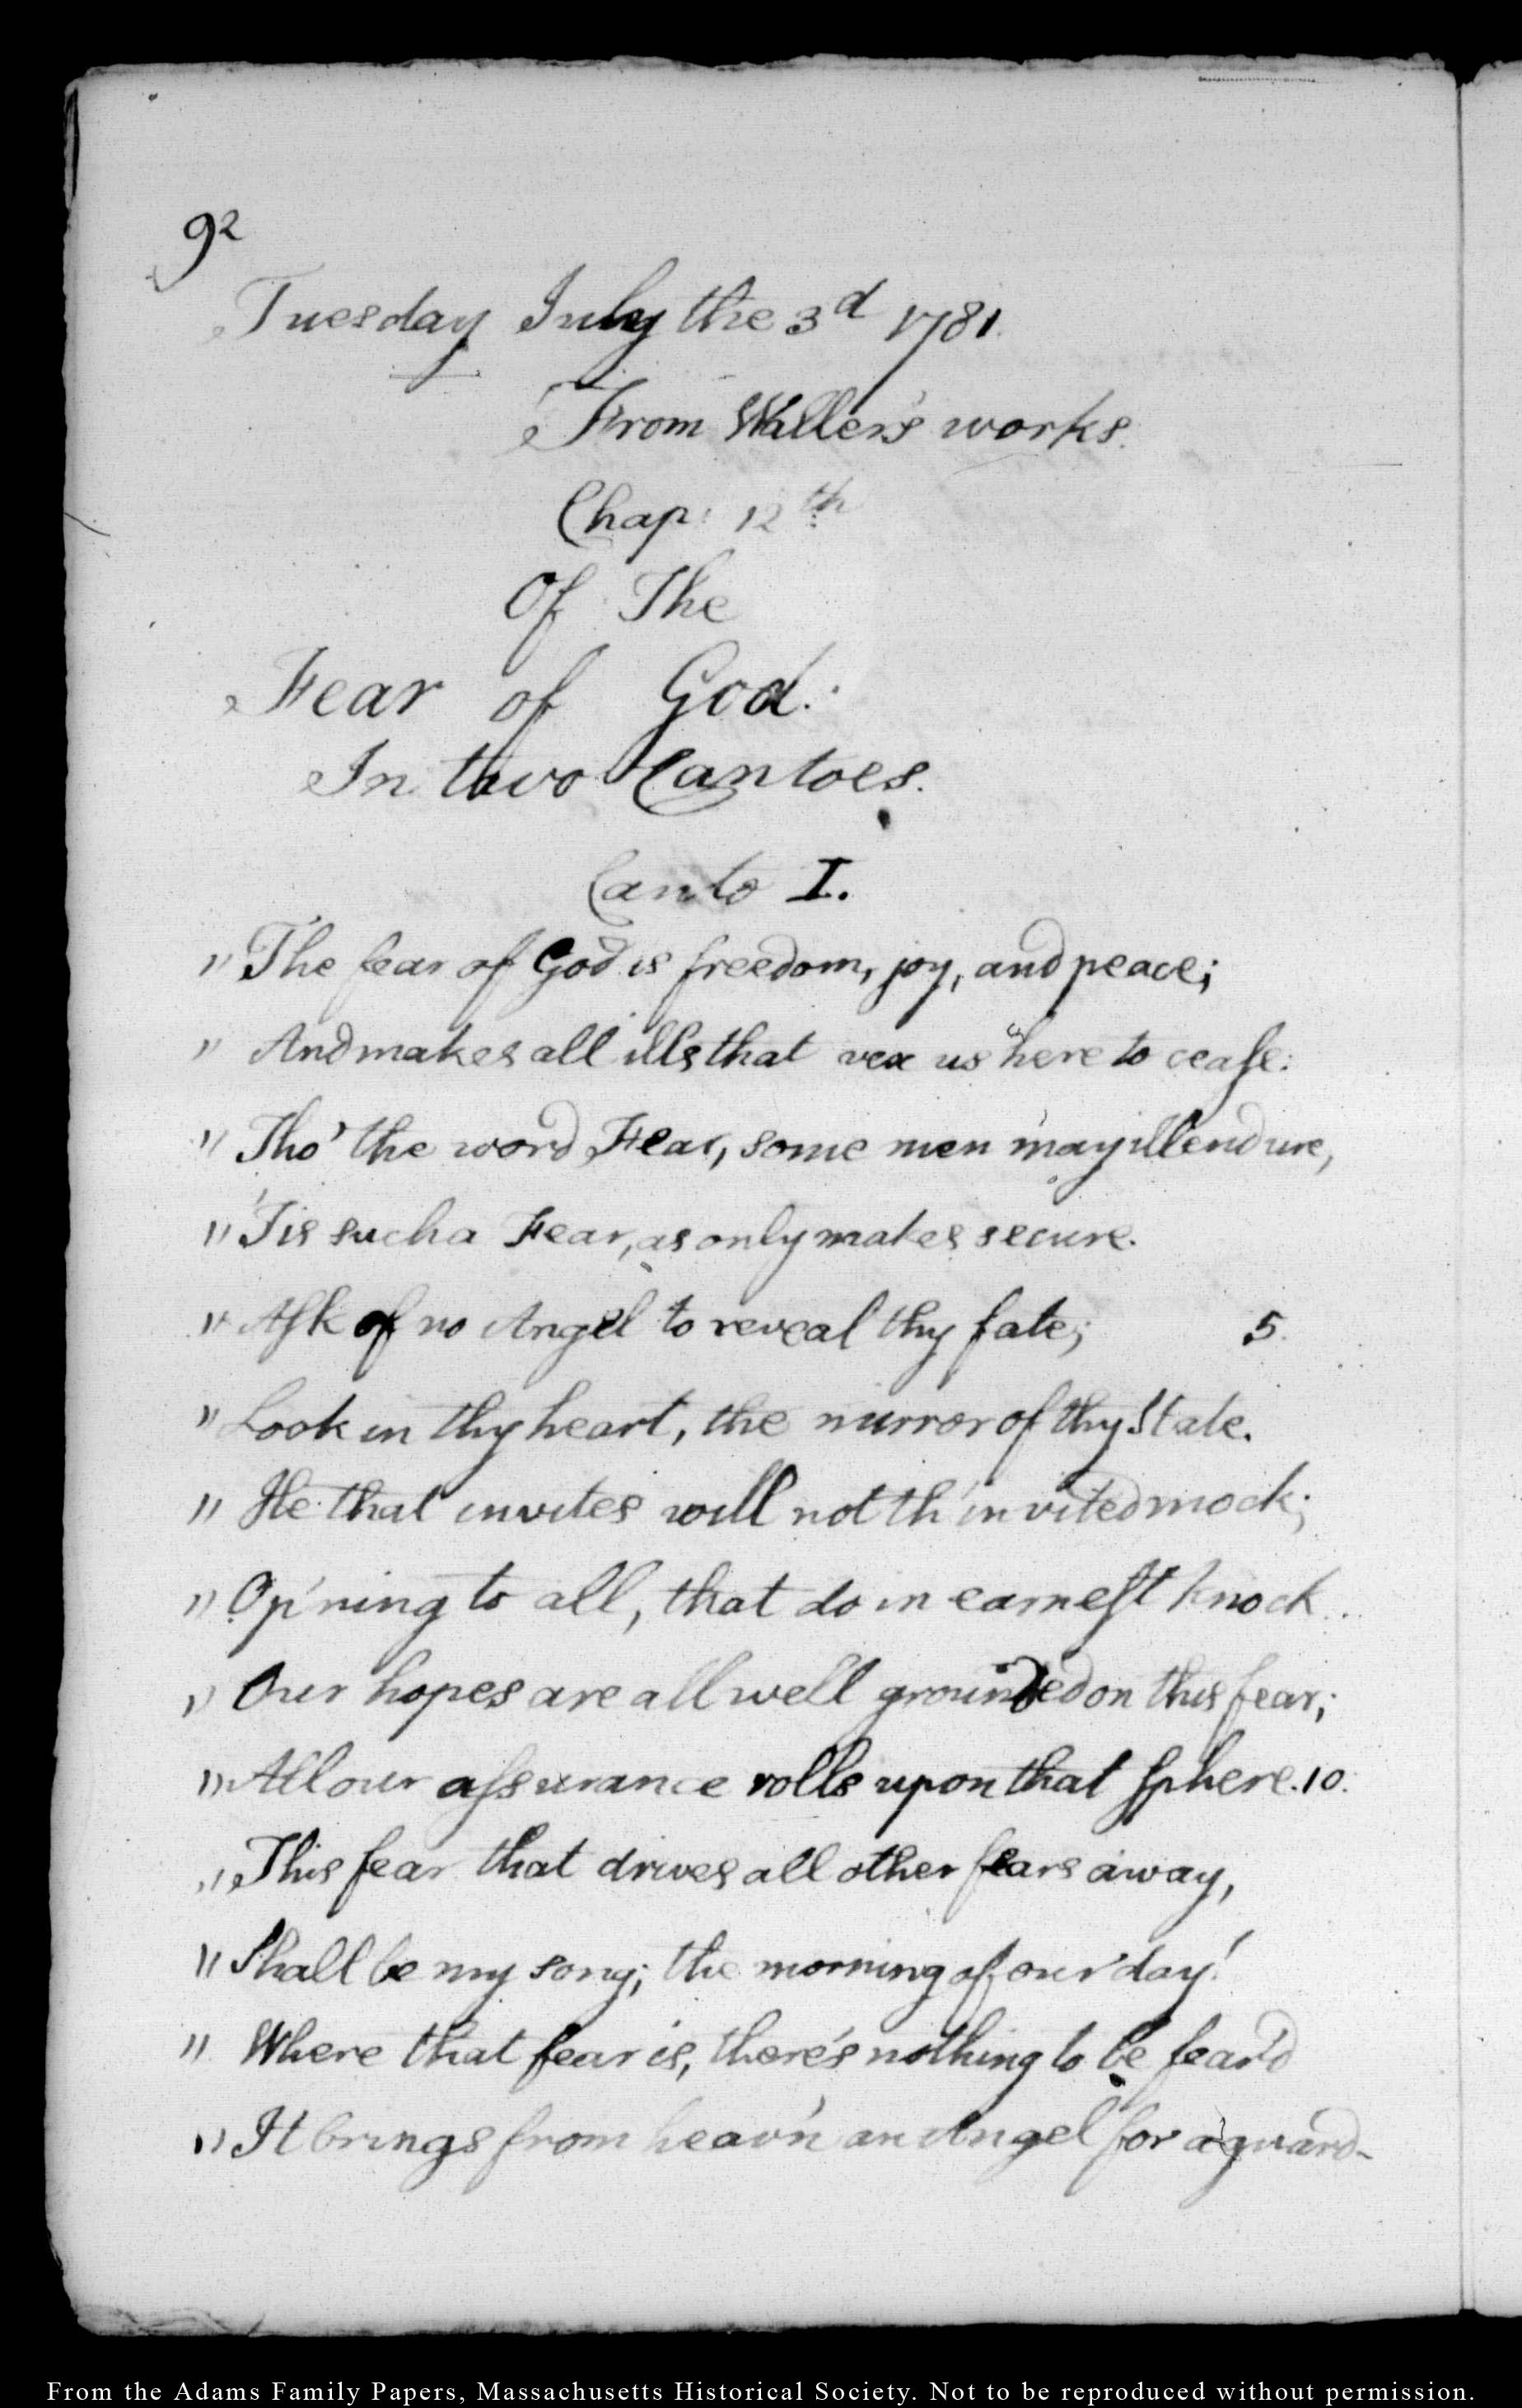 92
Tuesday July the 3d 1781.
From Waller's works.
Chap: 12th
Of The
Fear of God.
In two Cantoes.
Canto I.
" The fear of God is freedom, joy, and peace;
" And makes all ills that vex us here to cease:
" Tho' the word Fear, some men may ill endure,
" 'Tis such a Fear, as only makes secure.
" Ask of no Angel to reveal thy fate; 5.
" Look in thy heart, the mirror of thy State.
" He that invites will not th' invited mock;
" Op'ning to all, that do in earnest knock.
" Our hopes are all well grounded on this fear;
" All our assurance rolls upon that Sphere. 10.
" This fear that drives all other fears away,
" Shall be my song; the morning of our day!
" Where that fear is, there's nothing to be fear'd
" It brings from heav'n an Angel for a guard-
From the Adams Family Papers, Massachusetts Historical Society. Not to be reproduced without permission.